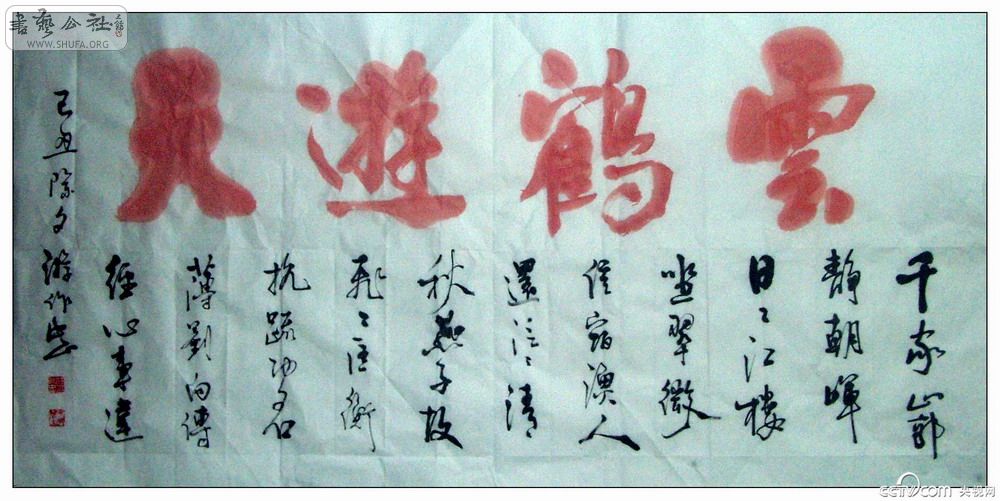 書藝公社
WWW.SHUFA.ORG
雲鶴遊
千家山郭
静朝暉
日々江樓
坐翠微
信宿漁人
還泛々清
秋燕子故
飛々匡衡
抗疏功名
薄劉向傳
經心事違
己丑除夕
cctv.com 央视网